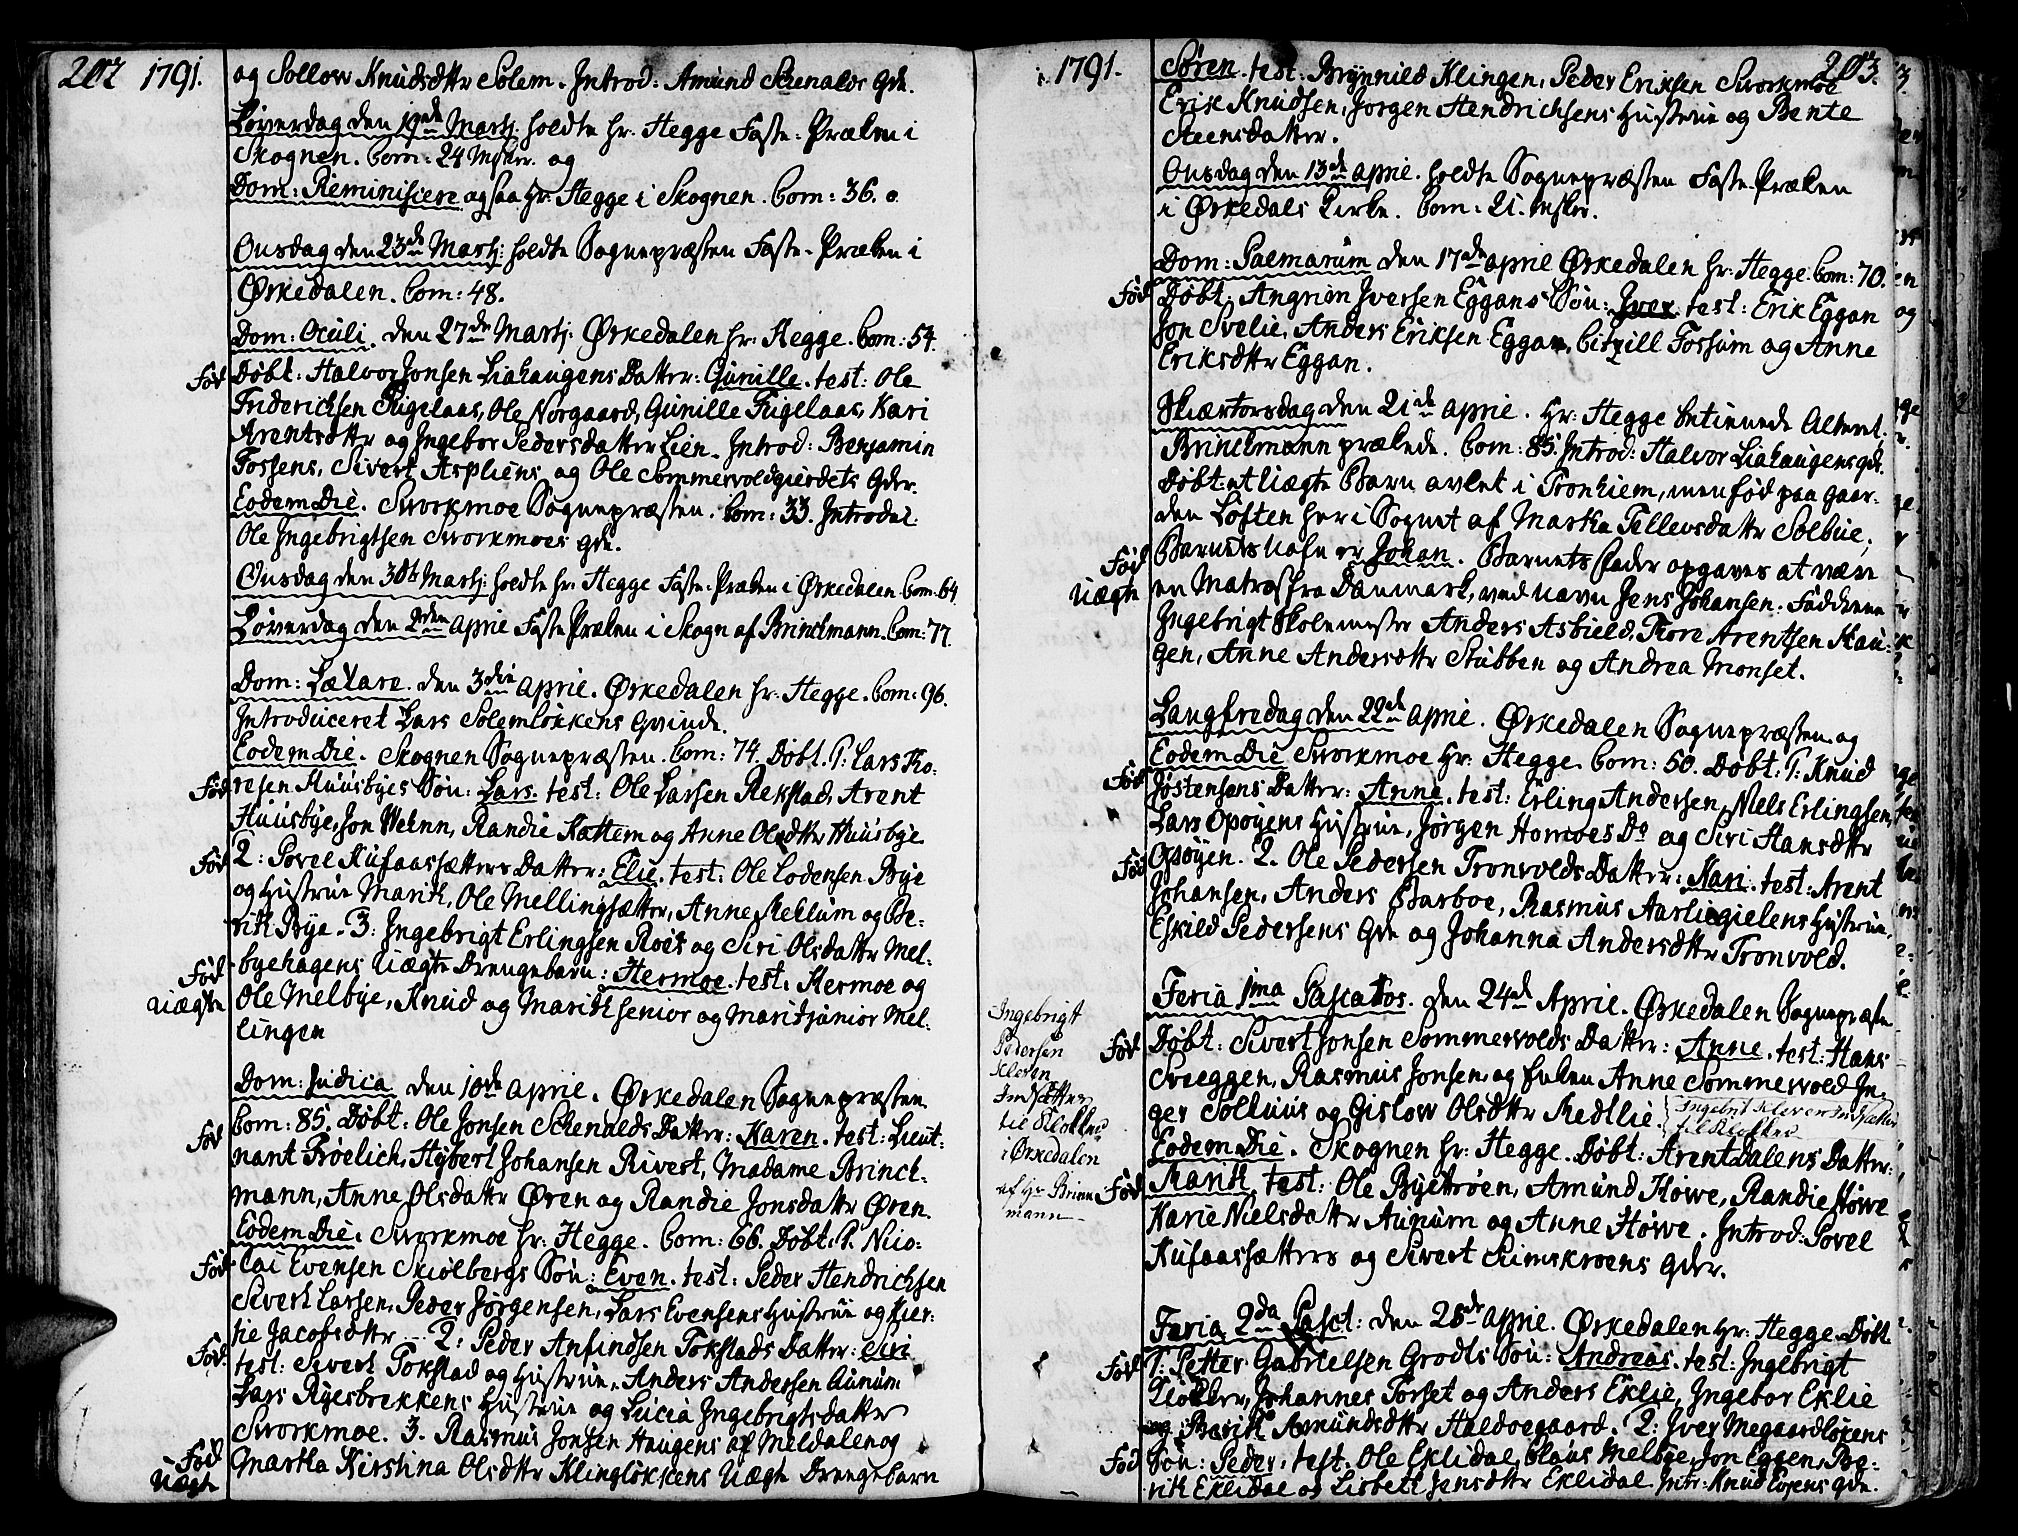 202 1791.
og Sollow Knudsdttr Solem. Introd: Amund Schenalds qde.
Løverdag den 19de Martj: holdte hr: Hegge Faste-Præken i
Skognen. Com: 24 Mskr. og
Dom: Reminiscere ogsaa hr: Hegge i Skognen. Com: 36.
Onsdag den 23de Martj: holdte Sognepræsten Faste-Præken i
Ørkedalen. Com: 48.
Dom: Oculi. den 27de Martj: Ørkedalen hr: Hegge. Com: 54.
Død Døbt: Halvor Jonsen Liahaugens Datter: Gunille. test: Ole
Friderichsen Fugelaas, Ole Norgaard, Gunille Fugelaas, Kari
Arentsdttr og Ingebor Pedersdatter Lien. Introd: Benjamin
Fossens, Sivert Aspliens og Ole Sommervoldgierdets Qder.
Eodem Die. Sworkmoe Sognepræsten. Com: 33. Introdul:
Ole Ingebrigtsen Sworkmoes qde.
Onsdag den 30te Martj: holdte hr: Hegge Faste-Præken i Ørkedalen Com: 64.
Løverdag den 2den Aprie Faste Præken i Skogn af Brinckmann. Com: 77.
Dom: Lætare. den 3die Aprie. Ørkedalen hr: Hegge. Com: 96.
Introduceret Lars Solemløkkens Qvinde.
Eodem Die. Skognen Sognepræsten. Com: 74. Døbt. 1: Lars To-
Fød resen Huusbyes Søn: Lars. test: Ole Larsen Rekstad, Arent
Huusbye, Jon Weknn, Randie Kattem og Anne Olsdttr Huusbye
Fød 2: Povel Kufaassætters Datter: Elie. test: Ole Lodensen Bye
og Hustrue Marith, Ole Mellingsætter, Anne Meklum og Be-
rith Bye. 3: Ingebrigt Erlingsen Roes og Siri Olsdatter Mel-
Fød byehagens Uægte Drengebarn: Hermoe. test: Hermoe og
Uægte Ole Melbye, Knud og Marith senior og Marit junior Mel-
lingen
Dom: Judica den 10de Aprie. Ørkedalen Sognepræsten
Fød Com: 85. Døbt: Ole Jonsen Schenalds Datter: Karen. test: Lieut-
nant Frøelich, Hybert Johansen Rivert, Madame Brinck-
mann, Anne Olsdattr Øren og Randie Jonsdattr Øren.
Eodem Die. Sworkmoe hr: Hegge. Com: 66. Døbt: 1. Nico-
Fød lai Evensen Skiølbergs Søn: Even. test: Peder Hendrichsen
Sivert Larsen, Peder Jørgensen, Lars Evensens Hustrue og Kier-
tie Jacobsdttr. 2: Peder Anfindsen Tokstads Datter: Siri
Fød. test: Sivert Tokstad og Hustrue, Anders Andersen Aunum
Lars Ryesbrekkens Hustrue og Lucia Ingebrigtsdattr
Sworkmoe. 3. Rasmus Jonsen Haugens af Meldalen og
Fød Uægt Martha Kirstina Olsdttr Klingløkkens Uægte Drengebarn
1791. 203.
Søren. test: Brynnild Klingen, Peder Eriksen Sworkmoe
Erik Knudsen, Jørgen Hendrichsens Hustrue og Bente
Steensdatter.
Onsdag den 13de Aprie. holdte Sognepræsten Faste-Præken
i Ørkedals Kirke. Com: 21. Mskr.
Dom: Palmarum den 17de Aprie Ørkedalen hr: Hegge. Com: 70.
Fød Døbt, Angrim Iversen Eggans Søn: Iver. test: Erik Eggan
Jon Svelie, Anders Eriksen Eggan, Citzill Fossum og Anne
Eriksdttr Eggan.
Skiærtorsdag den 21de Aprie. hr: Hegge betiennede Alteret.
Brinckmann prækede. Com: 85. Introd: Halvor Liahaugens qde.
Døbt: et Uægte Barn avlet i Tronhiem, men fød paa Gaar-
den Løften her i Sognet af Martha Tellevsdattr Solbue;
Fød Barnets Nafn er Johan. Barnets Fader opgaves at være
Uægte en Matros fra Danmark, ved navn Jens Johansen. Fadderne
Ingebrigt Skolemester Anders Asbield, Tore Arentsen Hau-
gen, Anne Andersdttr Stubben og Andrea Monset.
Langfredag den 22de Aprie. Ørkedalen Sognepræsten og
Eodem Die Sworkmoe hr: Hegge. Com: 50. Døbt: 1: Knud
Fød Jøstensens Datter: Anne. test: Erling Andersen, Niels Erlingsen,
Lars Opøyens Hustrue, Jørgen Homoes Do og Siri Hansdttr
Fød Opøyen. 2. Ole Pedersen Tronvolds Datter: Kari. test: Arent
Johansen, Anders Barboe, Rasmus Aarliegielens Hustrue,
Eskild Pedersens Qde og Johanna Andersdttr Tronvold.
Feria 1ma Pascatos. den 24de Aprie. Ørkedalen Sognepræsten
Fød Døbt: Sivert Jonsen Sommervolds Datter: Anne. test: Hans
Sveeggen, Rasmus Jonsen, og Enken Anne Sommervold In-
ger Solhuus og Gislow Olsdttr Medlie. Ingebrt Kleven Indsætter til Klokker
Eodem Die. Skognen hr: Hegge. Døbt: Arent Dalens Datter:
Fød Marith. test: Ole Byetrøen, Amund Howe, Randie Howe
Karie Nielsdattr Aunum og Anne Howe. Introd: Povel
Kufaassætters og Sivert Simskroens Qder.
Ingebrigt
Pedersen
Kleven
Indsætter
til Klokker
i Ørkedalen
af Hr Brinne
mann
Feria 2da Pasct: den 25de Aprie. Ørkedalen hr: Hegge. Døbt
Fød 1: Petter Gabrielsen Grodts Søn: Andreas. test: Ingebrigt
Klokker, Johannes Forset og Anders Eklie, Ingebor Eklie
og Berith Amundsdttr Haldoegaard. 2: Iver Megaardløkens
Fød Søn: Peder. test: Ole Eklidal, Claus Melbye, Jon Eggen, Be-
rith Eklidal og Lisbeth Jensdttr Eklidal. Intr: Knud Eopens qde.